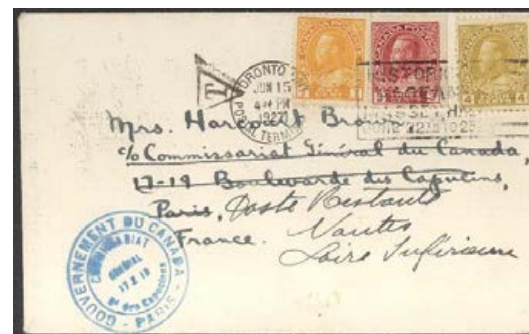 TORONTO
JUN 15
4 PM
1927
POSTAL TERMINAL
T
HISTORICAL
PAGEANT
Mrs. Harcourt Brown
c/o Commissariat Général du Canada,
17-19 Boulevarde des Caputins,
Paris, Poste Restante
France. Nantes
Loire Inférieure
GOUVERNEMENT DU CANADA
COMMISSARIAT
GÉNÉRAL
17 & 19
Bd des Capucines
- PARIS -